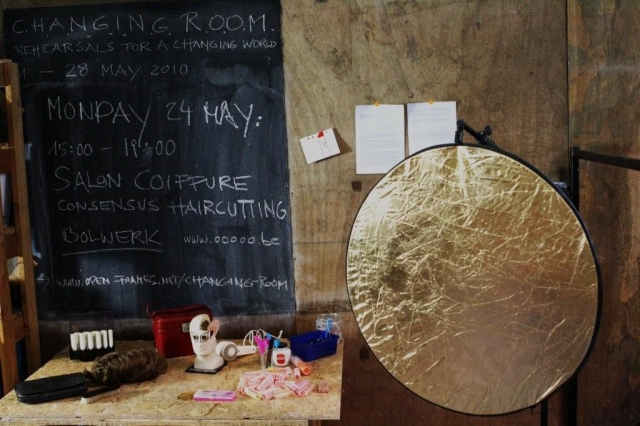 C.H.A.N.G.I.N.G. R.O.O.M.
REHEARSALS FOR A CHANGING WORLD
1 – 28 MAY 2010
MONDAY 24 MAY:
15:00 – 19:00
SALON COIFFURE
CONSENSUS HAIRCUTTING
BOLWERK www.ooooo.be
www.OPEN-FRAMES.NET/CHANGING-ROOM